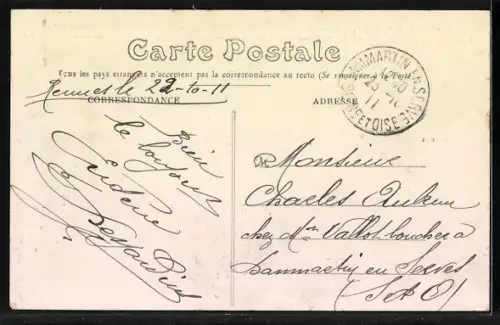 Carte Postale
Tous les pays étrangers n'acceptent pas la correspondance au recto (Se renseigner à la Poste)
Rennes le 22-10-11
CORRESPONDANCE
ADRESSE
DAMMARTIN-EN-SERVE
SEINE-ET-OISE
11
Bien
le bonjour
Monsieur
Charles
chez Mr Vallot boucher à
Dammartin en Serves
(S et O)